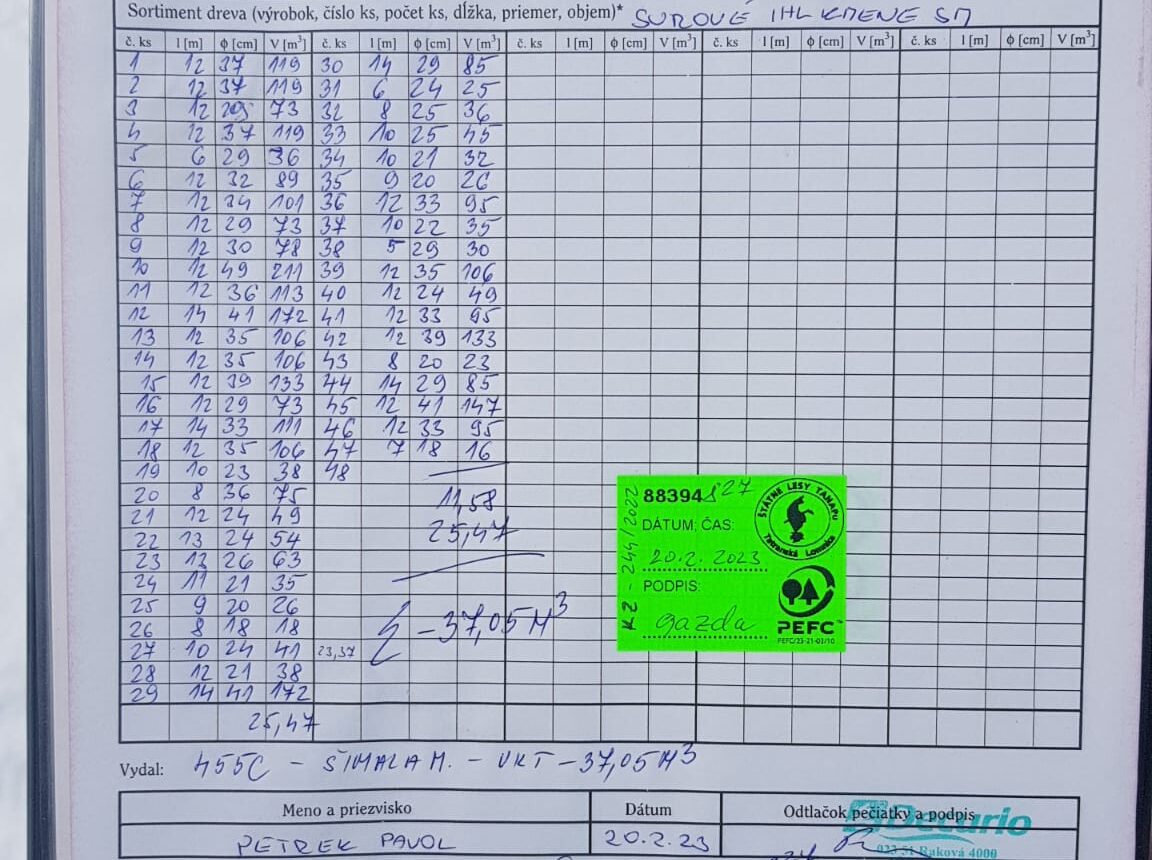 Sortiment dreva (výrobok, číslo ks, počet ks, dĺžka, priemer, objem)* SUROVÉ IHL KMENE SM
č. ks l [m] ϕ [cm] V [m³] č. ks l [m] ϕ [cm] V [m³] č. ks l [m] ϕ [cm] V [m³] č. ks l [m] ϕ [cm] V [m³] č. ks l [m] ϕ [cm] V [m³]
1 12 37 119 30 14 29 85
2 12 37 119 31 6 24 25
3 12 29 73 32 8 25 36
4 12 37 119 33 10 25 45
5 6 29 36 34 10 21 32
6 12 32 89 35 9 20 26
7 12 34 101 36 12 33 95
8 12 29 73 37 10 22 35
9 12 30 78 38 5 29 30
10 12 49 211 39 12 35 106
11 12 36 113 40 12 24 49
12 14 41 172 41 12 33 95
13 12 35 106 42 12 39 133
14 12 35 106 43 8 20 23
15 12 39 133 44 14 29 85
16 12 29 73 45 12 41 147
17 14 33 111 46 12 33 95
18 12 35 106 47 7 18 16
19 10 23 38 48
20 8 36 75 11,58
21 12 24 49 25,47
22 13 24 54
23 12 26 63
24 11 21 35
25 9 20 26
26 8 18 18 - 37,05 M³
27 10 24 41 23,37
28 12 21 38
29 14 41 172
25,47
88394 827
DÁTUM; ČAS:
20.2. 2023
PODPIS:
gazda
KZ - 244/2022
ŠTÁTNE LESY TANAPU
Tatranská Lomnica
PEFC™
PEFC/23-21-03/10
Vydal: 455C - ŠIMALA M. - VKT - 37,05 M³
Meno a priezvisko Dátum Odtlačok pečiatky a podpis
PETREK PAVOL 20.2.23
Decurio
023 51 Raková 4000